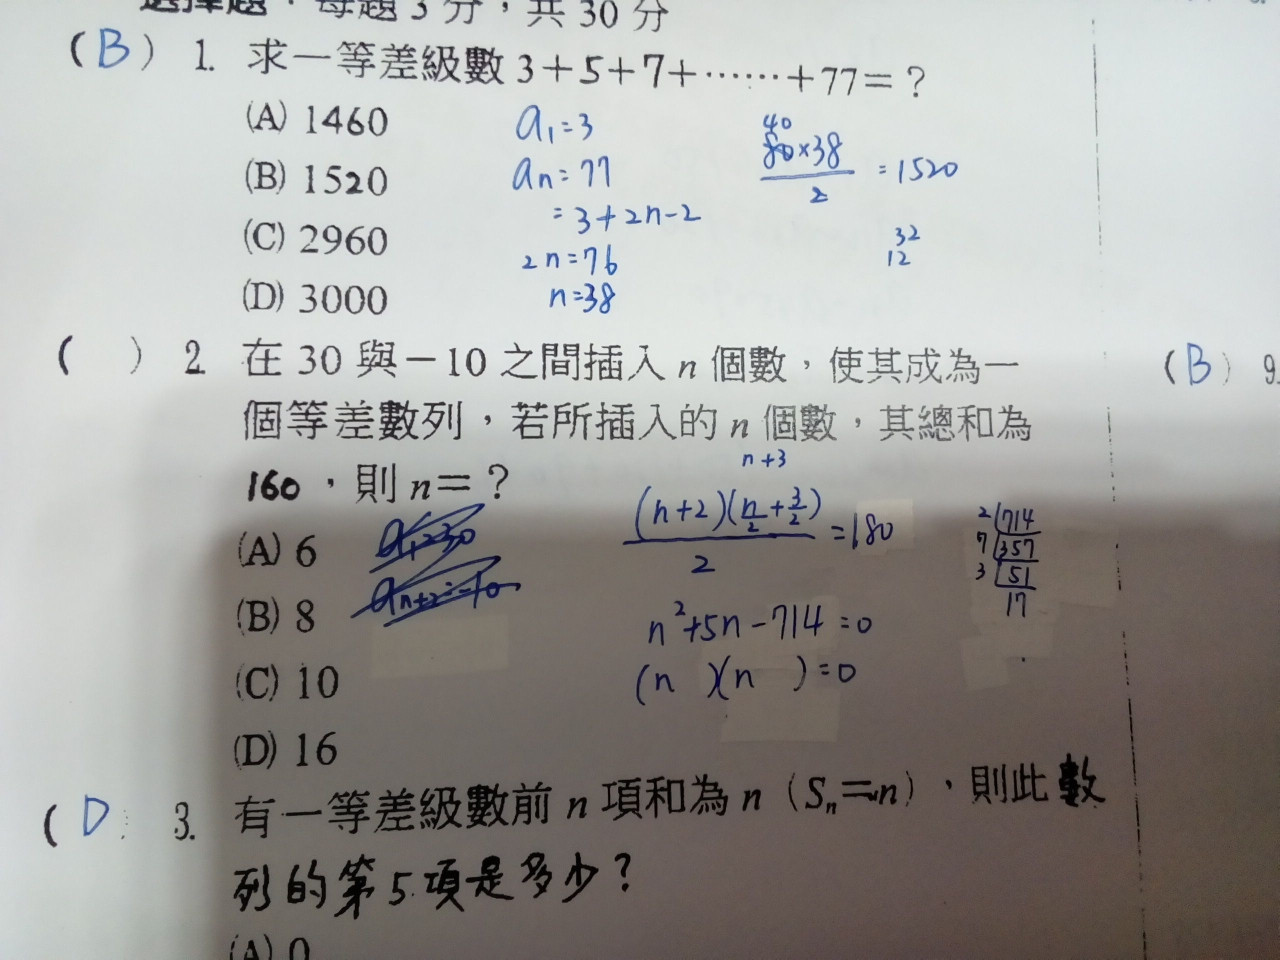 選擇題：每題3分，共30分
(B) 1. 求一等差級數3+5+7+……+77=？
(A) 1460
(B) 1520
(C) 2960
(D) 3000
a₁=3
aₙ=77
=3+2n-2
2n=76
n=38
40
80×38
2
=1520
32
12
( ) 2. 在30與-10之間插入n個數，使其成為一
個等差數列，若所插入的n個數，其總和為
160，則n=？
(A) 6
(B) 8
(C) 10
(D) 16
a₁=30
aₙ₊₂=-10
n+3
(n+2)(n/2+3/2)
2
=180
n²+5n-714=0
(n )(n )=0
2 714
7 357
3 51
17
(B) 9.
(D) 3. 有一等差級數前n項和為n（Sₙ=n），則此數
列的第5項是多少？
(A) 0